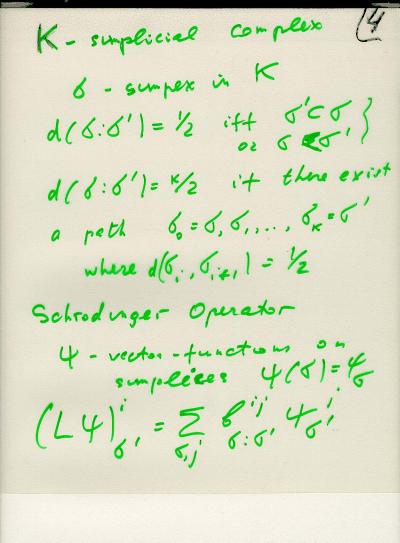 4
K - simplicial complex
σ - simpex in K
d(σ:σ') = 1/2 iff σ'⊂σ }
or σ⊂σ'
d(σ:σ') = k/2 if there exist
a path σ₀=σ, σ₁,..., σₖ=σ'
where d(σᵢ, σᵢ₊₁) = 1/2
Schrodinger Operator
ψ - vector-functions on
simplices ψ(σ)=ψ_σ
(Lψ)^i_σ' = Σ_{σ,j} b^{ij}_{σ:σ'} ψ^j_σ'